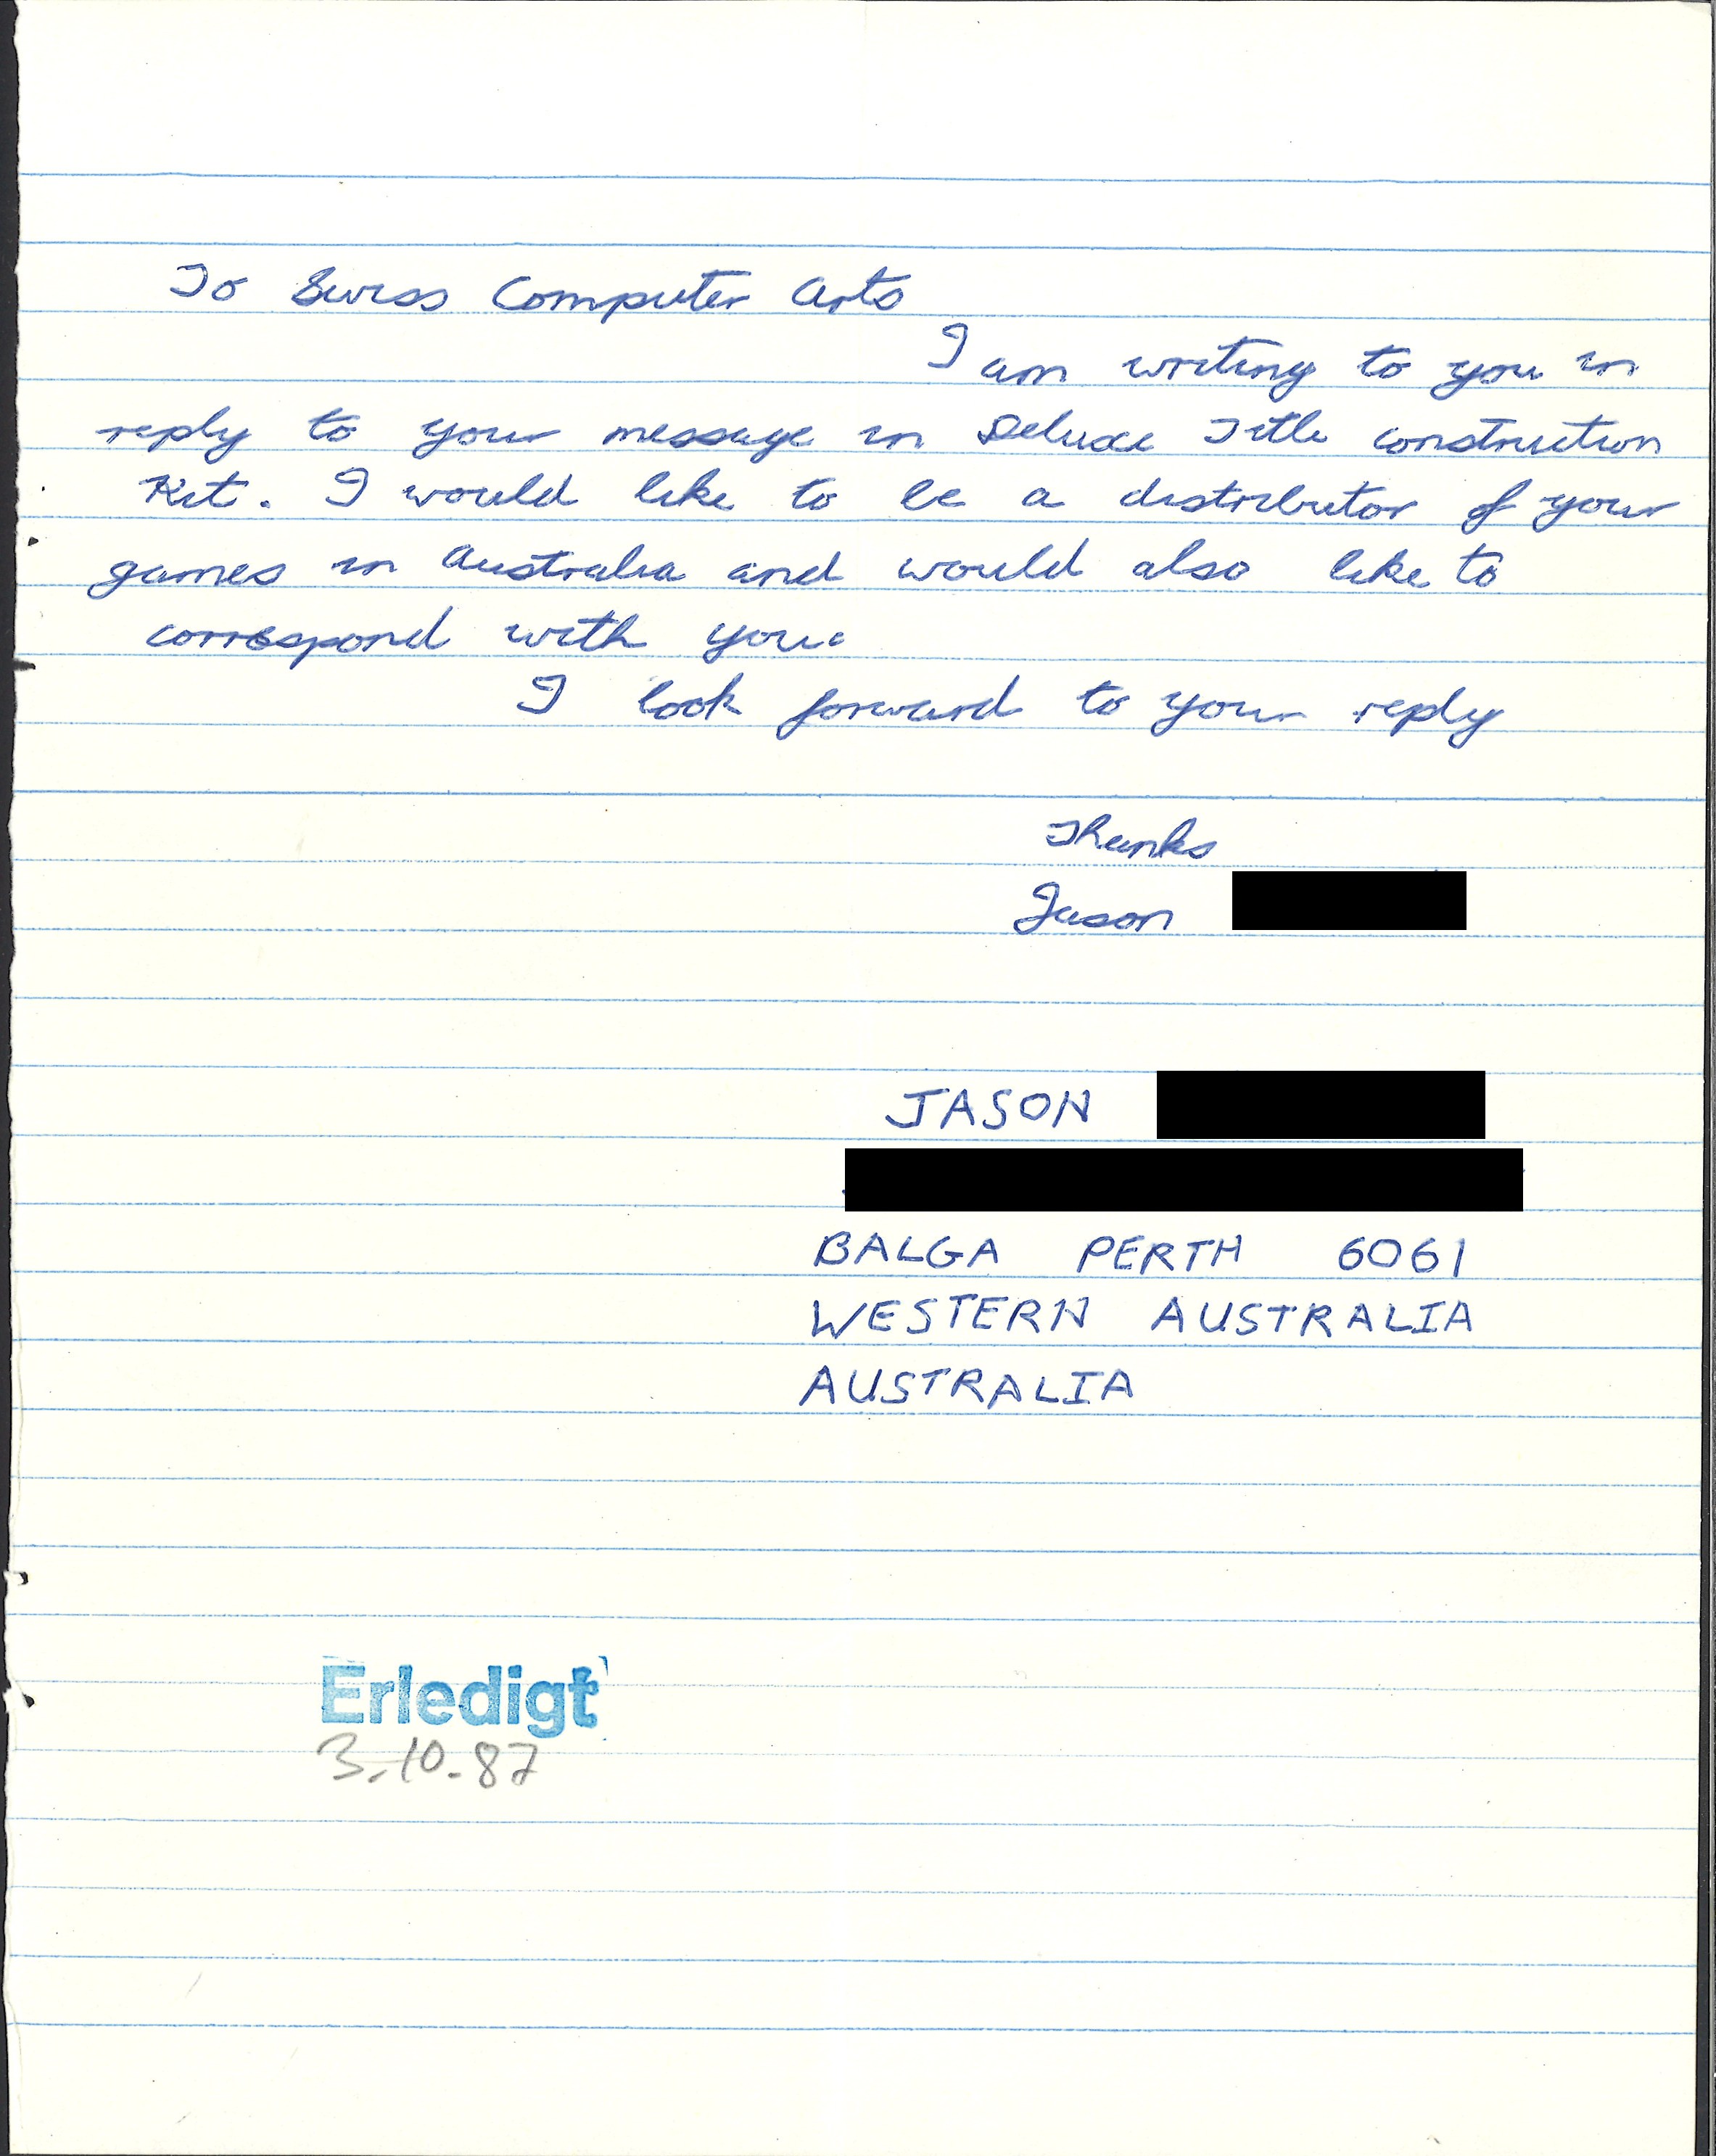 To Swiss Computer Arts
I am writing to you in
reply to your message in Deluxe Title construction
Kit. I would like to be a distributor of your
games in Australia and would also like to
correspond with you.
I look forward to your reply
Thanks
Jason
JASON
BALGA PERTH 6061
WESTERN AUSTRALIA
AUSTRALIA
Erledigt
3.10.87